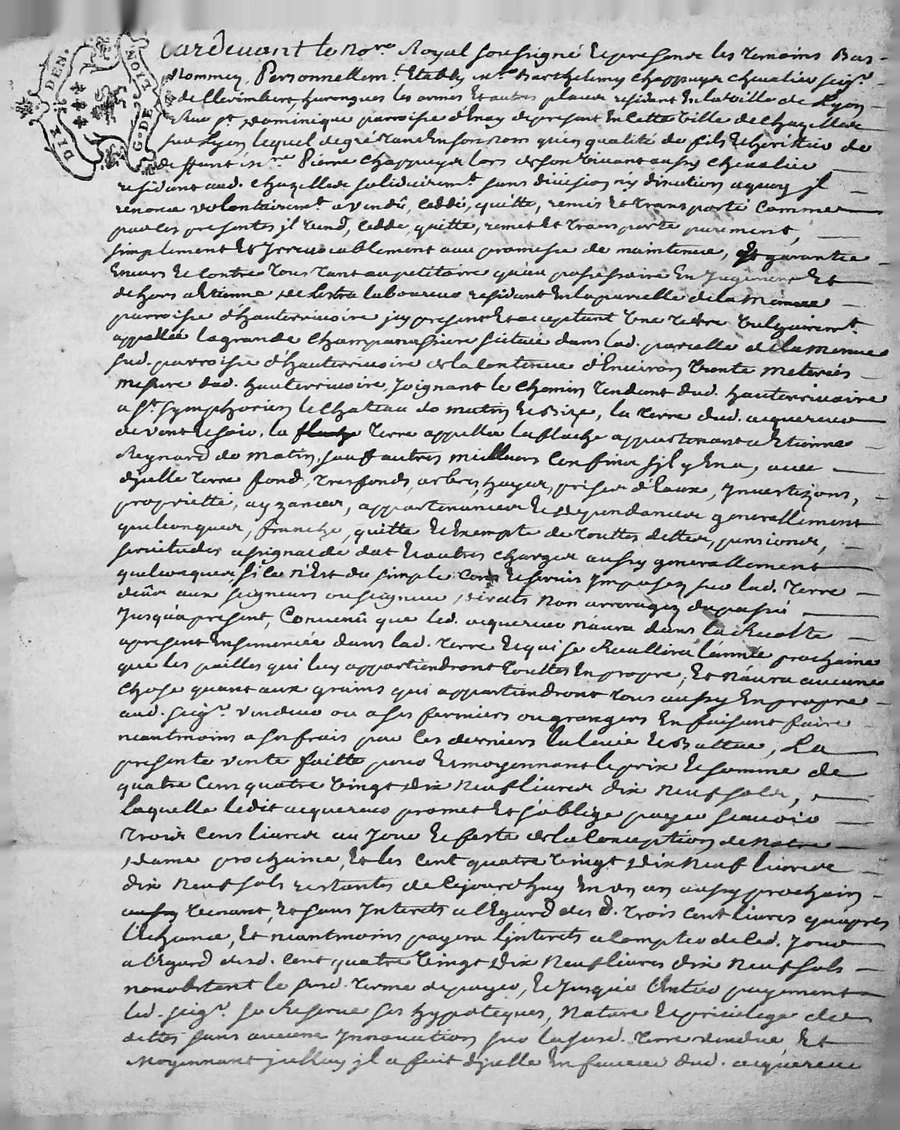 DIX DEN. G. DE LION
Pardevant le No.re Royal soussigné et presents les temoins Bas
Nommez, Personnellem.t Etably m.re Barthelemy Chappuys Chevalier seig.r
de Clerimbert hurongues les ormes Et autres places residant En la ville de Lyon
Rue s.t Dominique parroisse d'Enay de present En cette ville de chazelles
sur Lyon, lequel de gré tant En son nom qu'en qualité de fils Et héritier de
deffunt m.re Pierre Chappuys lors de son vivant aussy chevalier
residant aud. Chazelles solidairem.t sans division ny discution a quoy jl
renonce volontairem.t a vendu, Ceddé, quitté, remis Et transporté Comme
par Ces presentes jl Vend, Cedde, quitte, remet Et transporte purement,
simplement Et Irrevocablement avec promesse de maintenue, Et garantie
Envers Et Contre tous tant au petitoire qu'au possessoire En Jugement Et
dehors a Etienne laboureur residant En la parcelle de la Menue
parroisse d'hauterivoire jcy present Et acceptant Une terre Vulgairem.t
appellée la grande Champanassiere scituée dans lad. parcelle de la Menue
sud. parroisse d'hauterivoire de la Contenue d'Environ trente meterées
mesure dud. hauterivoire, Joignant le Chemin tendant dud. hauterivoire
a s.t Symphorien le Chateau de matin Et Bize, la terre dud. acquereur
de vent Et soir, la terre appellée la flache appartenant a Etienne
Reynard de matin, sauf autres meilleurs Confins s'jl y En a, avec
d'jcelle terre fond, tresfonds, arbres, hayes, prises d'Eaux, Jnvestizons,
proprietté, ayzances, appartenances Et dependances generallement
quelconques, franche, quitte Et Exempte de touttes dettes, pensions,
servitudes a signac de dot Et autres charges aussy generallement
quelcoques si ce n'Est du simple Cens Et servis Jmposez sur lad. terre
deûs aux seigneurs ou seigneur directs non arreragez du passé
Jusqu'a present, Convenu que led. acquereur n'aura dans la Recolte
a present Ensemencée dans lad. terre Et qui se Recullira l'année prochaine
que les pailles qui luy appartiendront touttes En propre, Et n'aura aucune
Chose quant aux grains qui appartiendront tous aussy En propre
aud. seig.r vendeur ou a ses fermiers ou grangers En faisant faire
neantmoins a ses frais par Ces derniers la levée Et Battue, La
presente vente faitte pour Et moyennant le prix Et somme de
quatre Cens quatre Vingt dix Neuf livres dix Neuf sols,
laquelle ledit acquereur promet Et s'oblige payer scavoir
trois Cens livres au Jour Et feste de la Conception de Notre
dame prochaine, Et les Cent quatre Vingt dix Neuf livres
dix Neuf sols restantes de Cejourd'huy En un an aussy prochain
venant, Et sans Jnterets a l'Egard des d. trois Cent livres qu'apres
l'Echeance, Et neantmoins payera l'jnterets a Compter de Ced. Jour
a l'Egard desd. Cent quatre Vingt dix Neuf livres dix Neuf sols
nonobstant le sud. terme de payer, Et Jusques l'Entier payement
led. seig.r se Reserve ses hypoteques, Nature Et privilege de
dettes sans aucune Jnnovation sur la susd. terre vendue, Et
Moyennant jcelluy jl a fait d'jcelle En faveur dud. acquereur